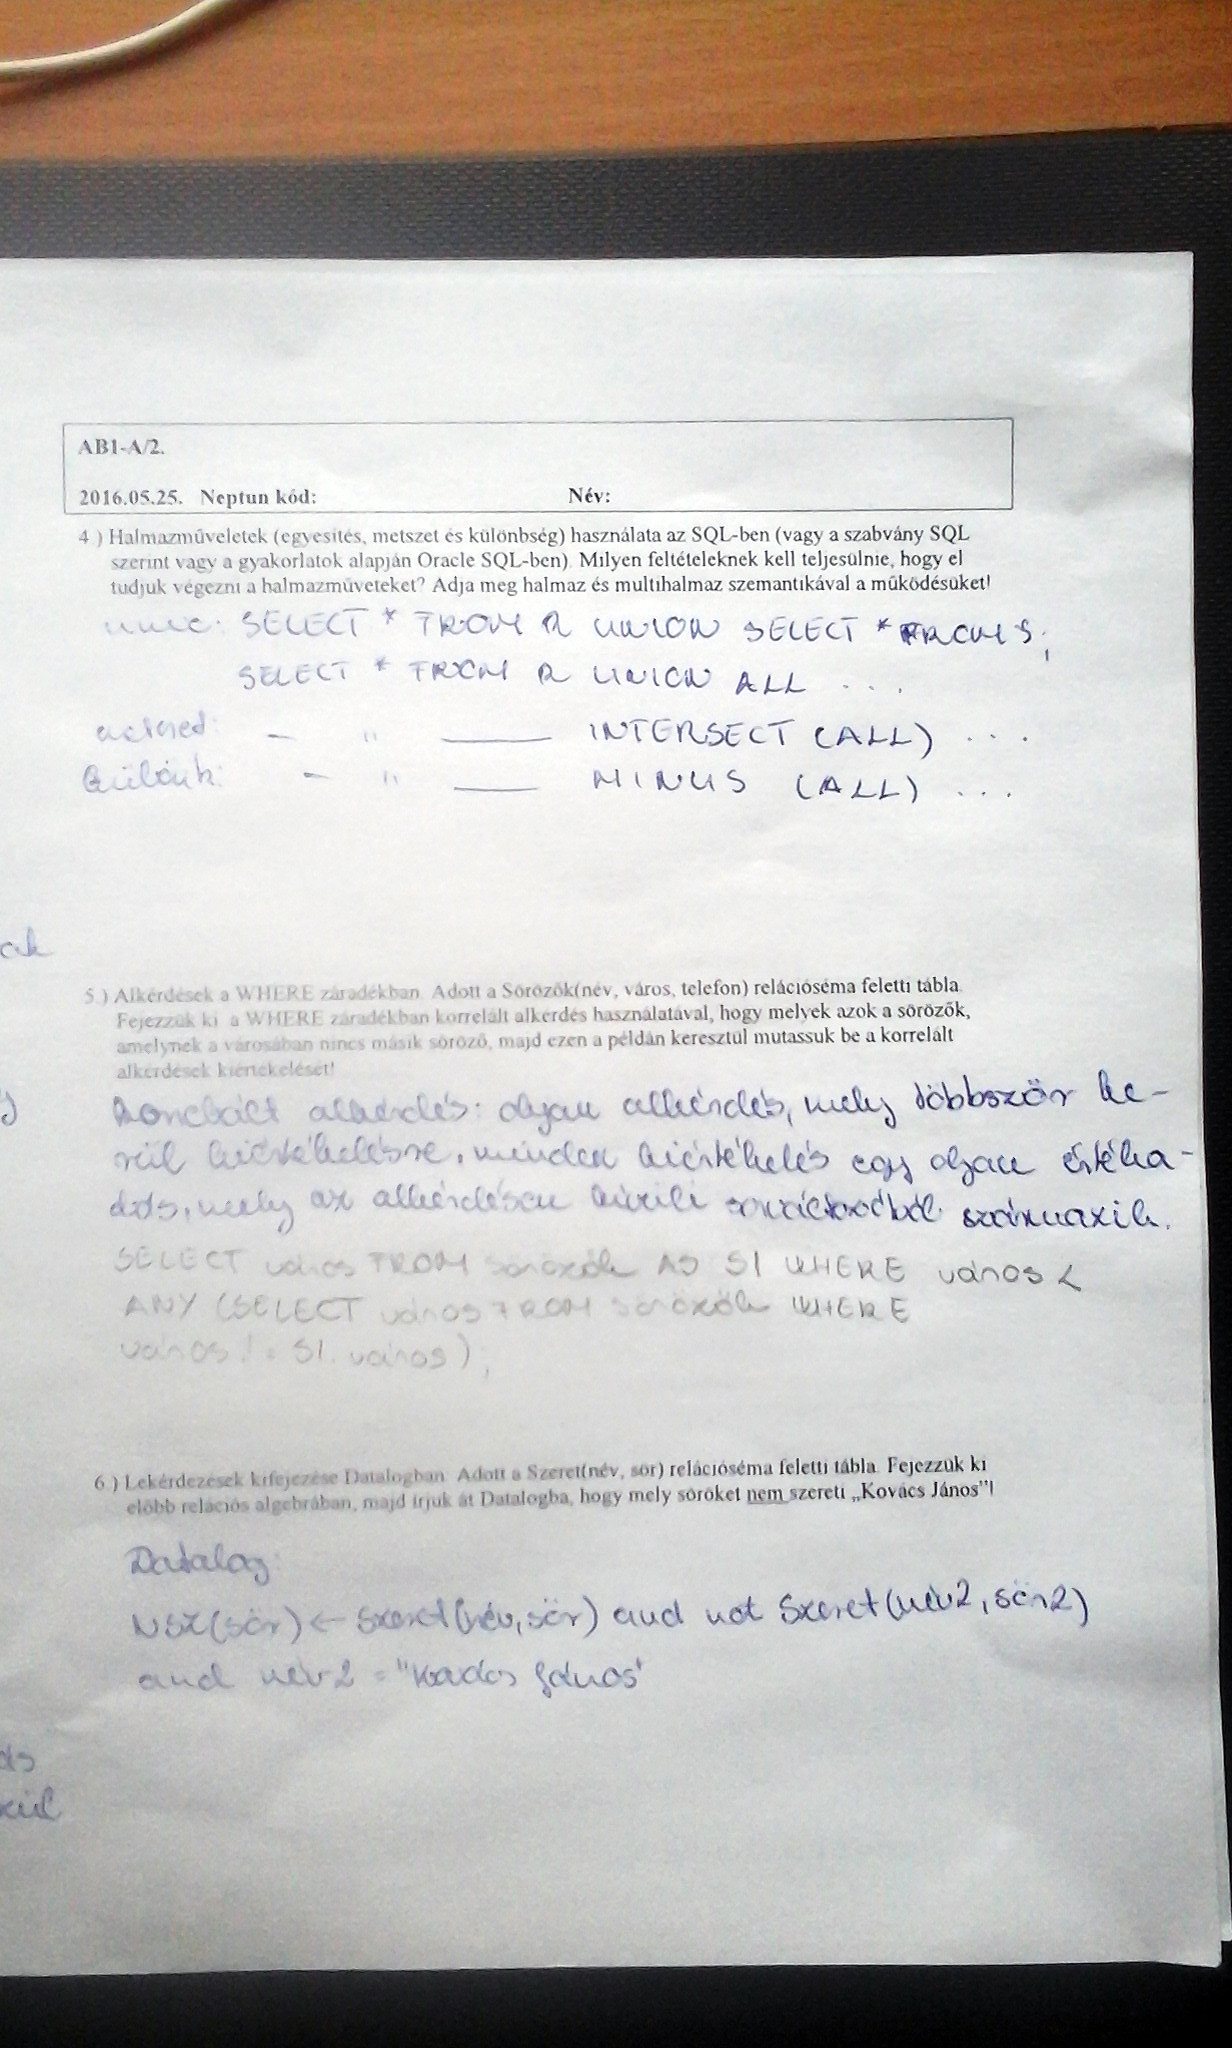 AB1-A/2.
2016.05.25. Neptun kód: Név:
4.) Halmazműveletek (egyesítés, metszet és különbség) használata az SQL-ben (vagy a szabvány SQL
szerint vagy a gyakorlatok alapján Oracle SQL-ben). Milyen feltételeknek kell teljesülnie, hogy el
tudjuk végezni a halmazműveteket? Adja meg halmaz és multihalmaz szemantikával a működésüket!
unió: SELECT * FROM R UNION SELECT * FROM S;
SELECT * FROM R UNION ALL ...
metszet: — " — INTERSECT (ALL) ...
különb: — " — MINUS (ALL) ...
ak
5.) Alkérdések a WHERE záradékban. Adott a Sörözők(név, város, telefon) relációséma feletti tábla.
Fejezzük ki a WHERE záradékban korrelált alkérdés használatával, hogy melyek azok a sörözők,
amelynek a városában nincs másik söröző, majd ezen a példán keresztül mutassuk be a korrelált
alkérdések kiértékelését!
Korrelált alkérdés: olyan alkérdés, mely többször ke-
rül kiértékelésre, minden kiértékelés egy olyan értéka-
dás, mely az alkérdésen kívüli sorváltozóból származik.
SELECT város FROM sörözők AS S1 WHERE város <
ANY (SELECT város FROM sörözők WHERE
város != S1.város);
6.) Lekérdezések kifejezése Datalogban. Adott a Szeret(név, sör) relációséma feletti tábla. Fejezzük ki
előbb relációs algebrában, majd írjuk át Datalogba, hogy mely söröket nem szereti „Kovács János”!
Datalog:
NSZ(sör) ← Szeret(név, sör) and not Szeret(név2, sör2)
and név2 = "János"